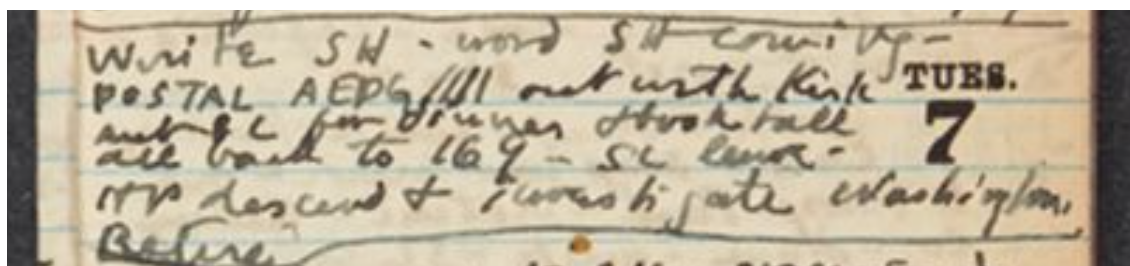 Write SH - word SH coming -
POSTAL AEPG/111 out with Kirk TUES.
out SC for dinner & book talk 7
all back to 169 - SC leave -
NP descend & investigate Washington.
Before